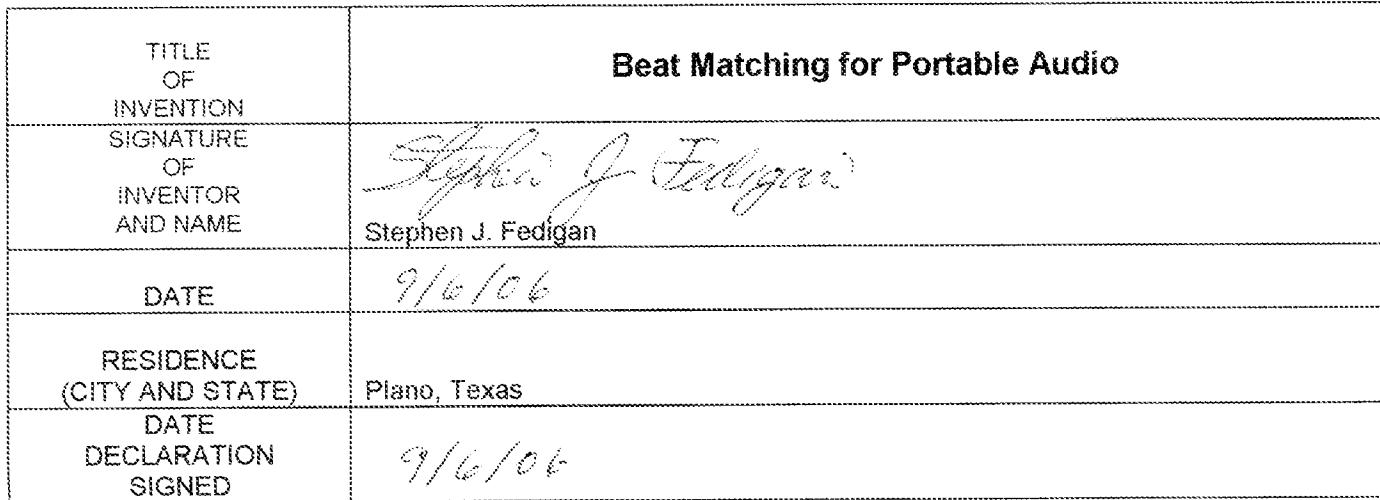 TITLE
OF
INVENTION
Beat Matching for Portable Audio
SIGNATURE
OF
INVENTOR
AND NAME
Stephen J Fedigan
Stephen J. Fedigan
DATE
9/6/06
RESIDENCE
(CITY AND STATE)
Plano, Texas
DATE
DECLARATION
SIGNED
9/6/06